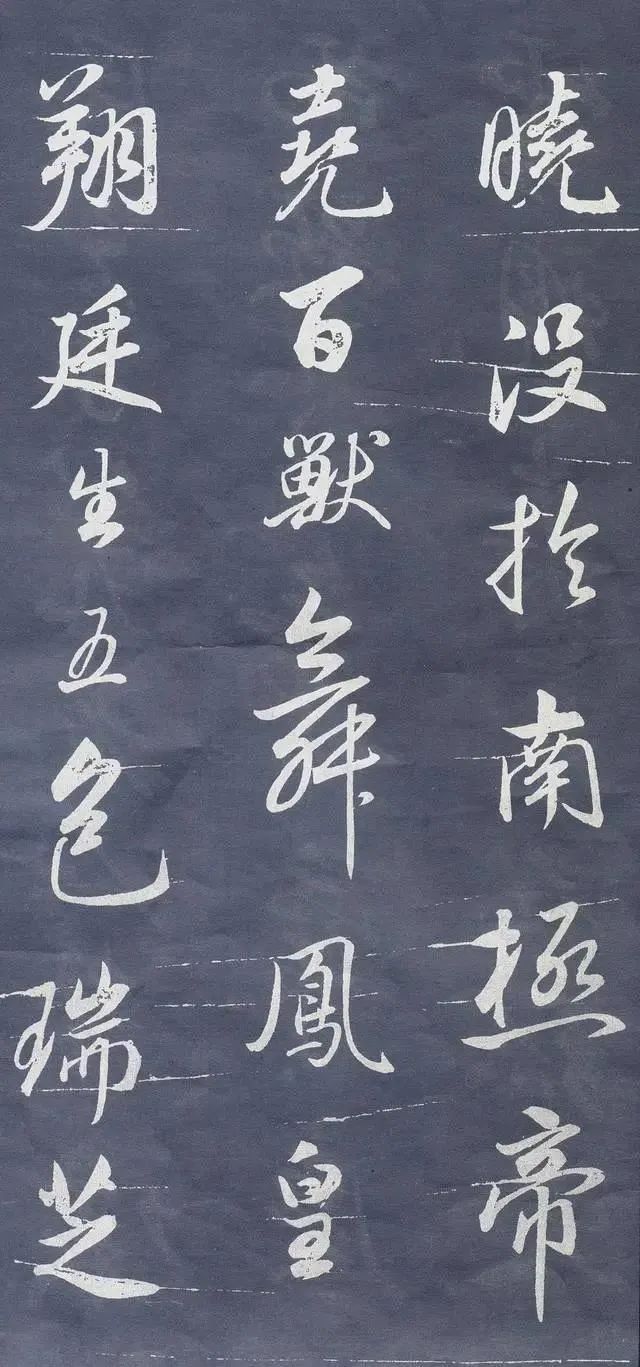 曉没於南極帝
堯百獸舞鳳皇
翔廷生五色瑞芝